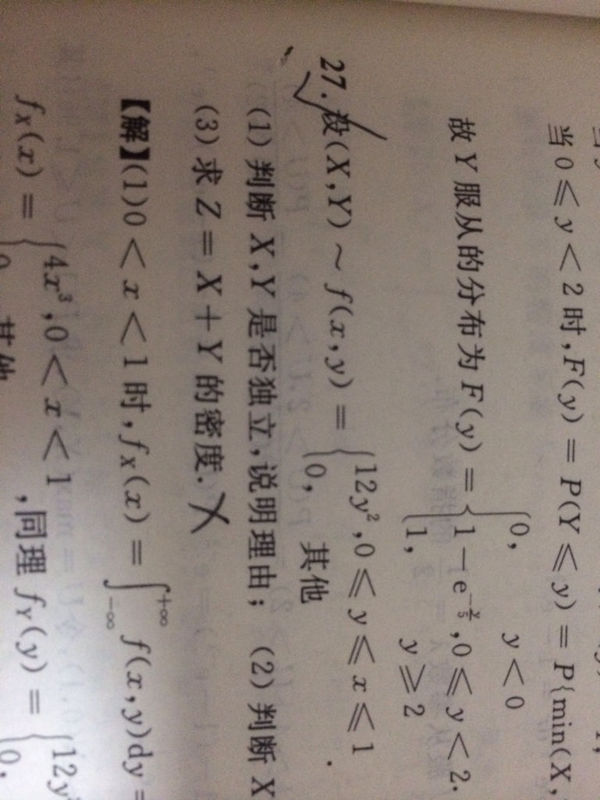 当 0 ≤ y < 2 时,F(y) = P(Y ≤ y) = P{min(X,
故 Y 服从的分布为 F(y) = { 0, y < 0
1 − e^{−y/5}, 0 ≤ y < 2.
1, y ≥ 2
27. 设(X,Y) ~ f(x,y) = { 12y², 0 ≤ y ≤ x ≤ 1
0, 其他 .
(1) 判断 X,Y 是否独立,说明理由; (2) 判断 X
(3) 求 Z = X + Y 的密度.
【解】(1)0 < x < 1 时,f_X(x) = ∫_{−∞}^{+∞} f(x,y)dy =
f_X(x) = { 4x³, 0 < x < 1 ,同理 f_Y(y) = { 12y
0, 其他 0,